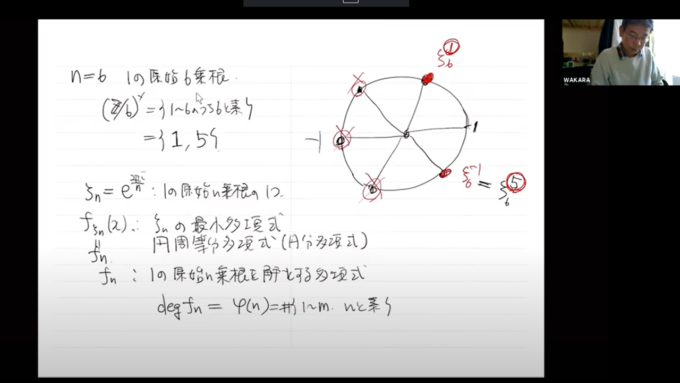 n=6 1の原始6乗根.
(Z/6)^× = {1~6のうち6と素}
= {1, 5}
ξn = e^{2πi/n} : 1の原始n乗根の1つ
fξn(x) : ξnの最小多項式
fn 円周等分多項式 (円分多項式)
fn : 1の原始n乗根を解とする多項式
deg fn = φ(n) = #{1~n. nと素}
ξ6^1
-1
1
ξ6^-1 = ξ6^5
WAKARA